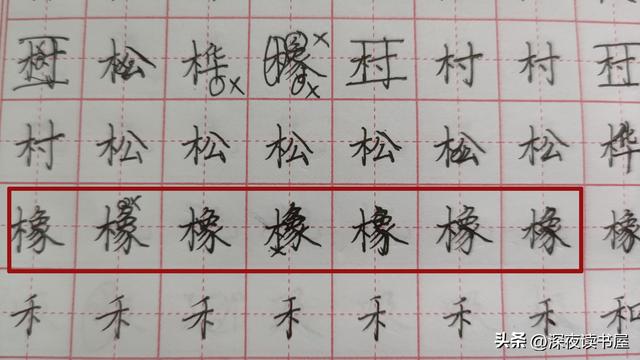 村 松 桦 橡 村 村 村 村
村 松 松 松 松 松 松 桦
橡 橡 橡 橡 橡 橡 橡 橡
禾 禾 禾 禾 禾 禾 禾 和
头条 @深夜读书屋